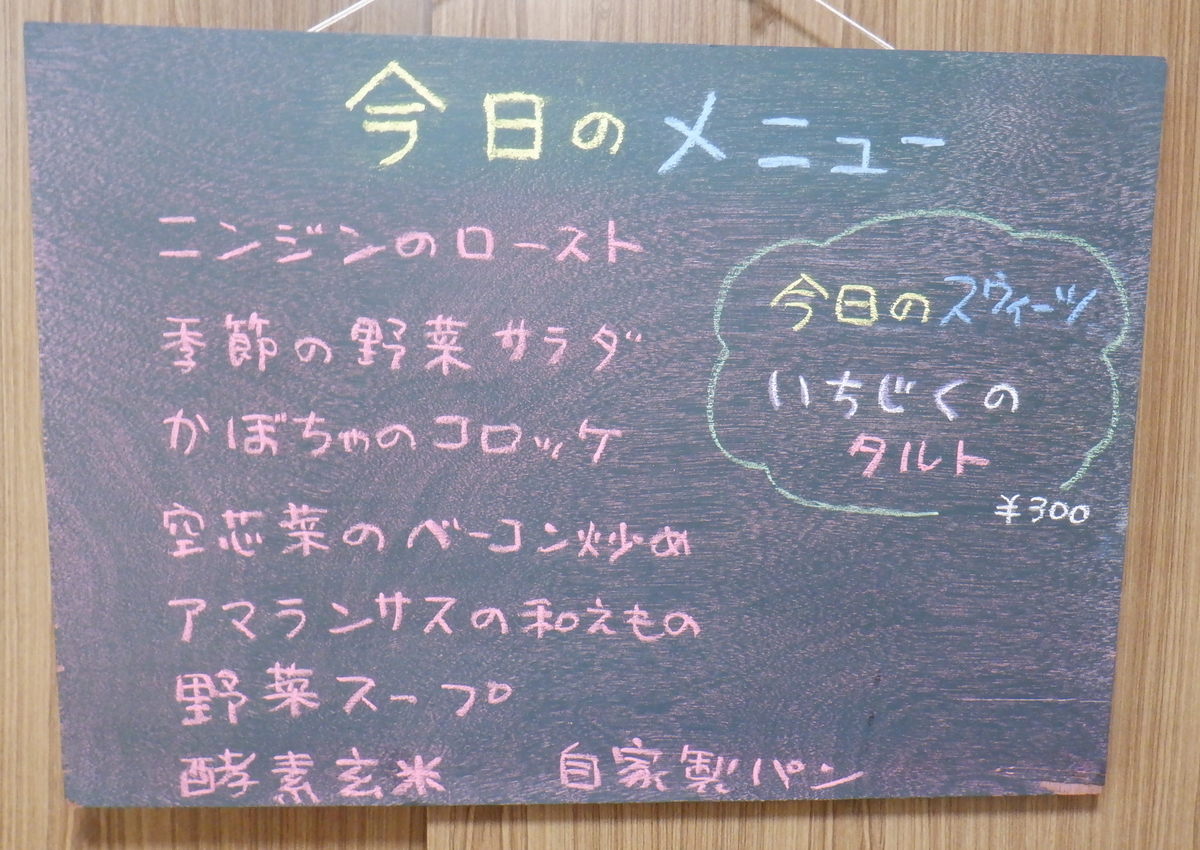 今日のメニュー
ニンジンのロースト
季節の野菜サラダ
かぼちゃのコロッケ
空芯菜のベーコン炒め
アマランサスの和えもの
野菜スープ
酵素玄米 自家製パン
今日のスウィーツ
いちじくの
タルト
¥300